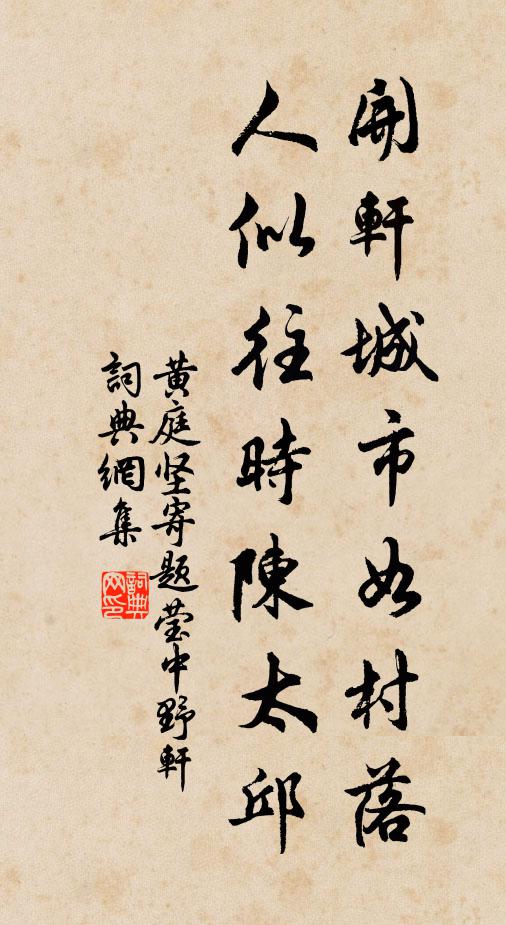 開軒城市如村落
人似往時陳太邱
黄庭坚寄題莹中野軒
詞典網集
詞典网印